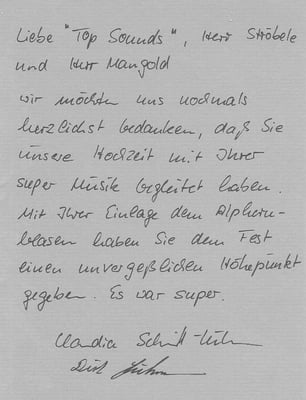 Liebe "Top Sounds", Herr Ströbele
und Herr Mangold
wir möchten uns nochmals
herzlichst bedanken, daß Sie
unsere Hochzeit mit Ihrer
super Musik begleitet haben.
Mit Ihrer Einlage dem Alphorn-
blasen haben Sie dem Fest
einen unvergeßlichen Höhepunkt
gegeben. Es war super.
Claudia
Dirk